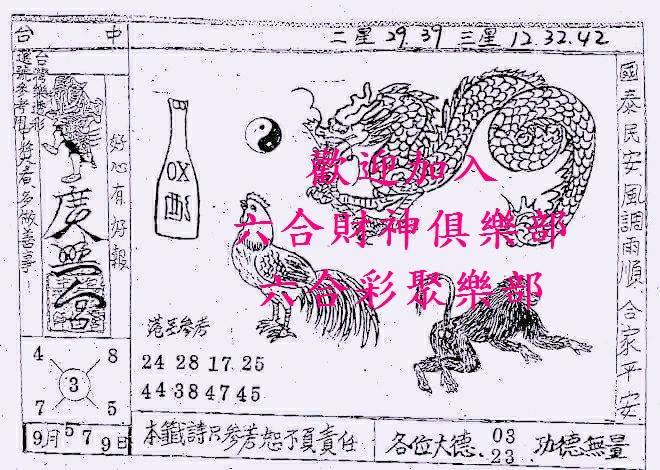 台中
二星 29.39 三星 12.32.42
國泰民安風調雨順 合家平安
台灣樂透彩
選號參考用中獎者多做善事!
好心有好報
OX
歡迎加入
六合財神俱樂部
六合彩聚樂部
港王參考
24 28 17 25
44 38 47 45
4 8
3
7 5
9月 5 7 9日
本籤詩只參考恕不負責任
各位大德 03
23
功德無量